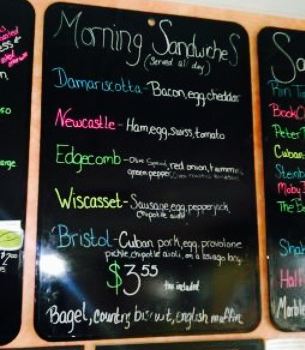 Morning Sandwiches
(served all day)
Damariscotta - Bacon, egg, cheddar
Newcastle - Ham, egg, swiss, tomato
Edgecomb - Olive Spread, red onion, hummus
green pepper,
Wiscasset - Sausage, egg, pepperjack,
chipotle aioli
Bristol - Cuban pork, egg, provolone
pickle, chipotle aioli, on a
$3.55
tax included
Bagel, country biscuit, english muffin
Sa
Book
Peter
Cuban
Stein
Moby
The B
Sha
Marble